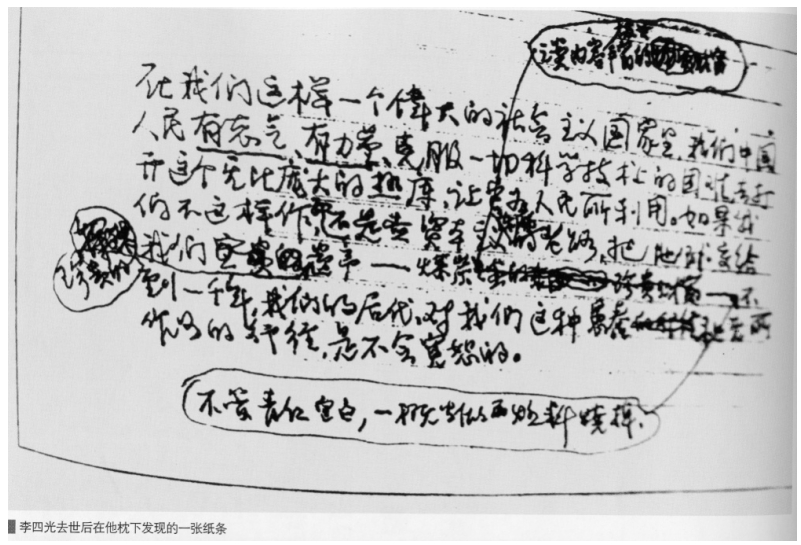 这类内容丰富的
在我们这样一个伟大的社会主义国家里，我们中国
人民有志气、有力量、克服一切科学技术的困难去打
开这个无比庞大的热库，让它为人民所利用。如果我
们不这样作，还是走资本主义的老路，把地球交给
我们宝贵的遗产——煤炭
珍贵的
到一千年，我们的后代，对我们这种
作风的行径，是不会宽恕的。
不管青红皂白，一概当做燃料烧掉，
李四光去世后在他枕下发现的一张纸条